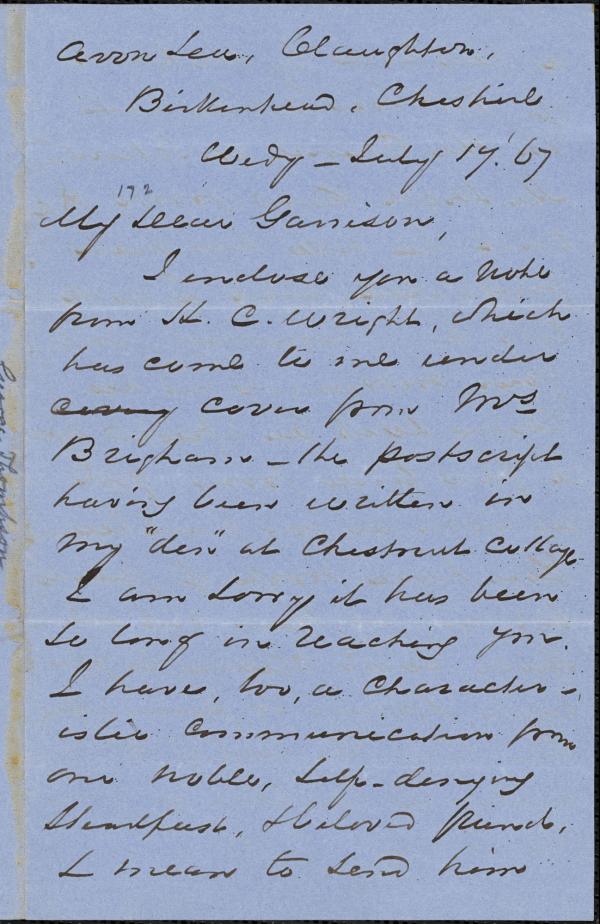 Avon Lea, Claughton,
Birkenhead. Cheshire
Wedy - July 17.' 67
172
My Dear Garrison,
I enclose you a note
from H. C. Wright, which
has come to me under
covering cover from Mrs
Brigham - the postscript
having been written in
my "den" at Chestnut Cottage.
I am sorry it has been
so long in reaching you.
I have, too, a character-
istic communication from
our noble, self-denying
steadfast, & beloved friend.
I mean to send him
George Thompson